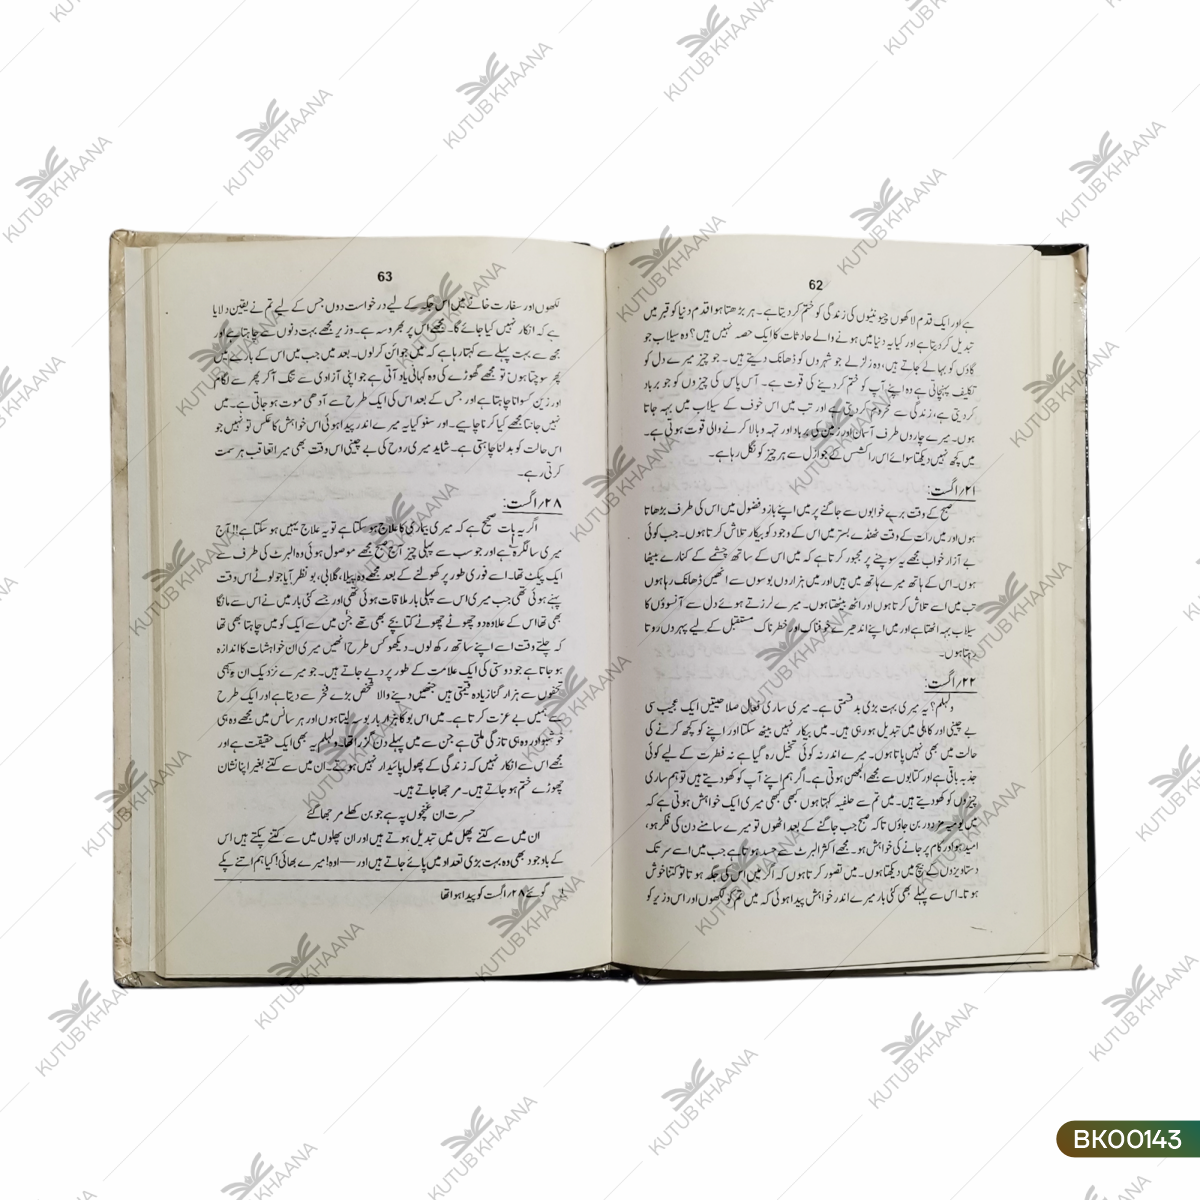 62
ہے اور ایک قدم لاکھوں چیونٹیوں کی زندگی کو ختم کر دیتا ہے۔ ہر بڑھتا ہوا قدم دنیا کو قبر میں
تبدیل کر دیتا ہے اور کیا یہ دنیا میں ہونے والے حادثات کا ایک حصہ نہیں ہیں؟ وہ سیلاب جو
گاؤں کو بہالے جاتے ہیں، وہ زلزلے جو شہروں کو ڈھانک دیتے ہیں۔ جو چیز میرے دل کو
تکلیف پہنچاتی ہے وہ اپنے آپ کو ختم کر دینے کی قوت ہے۔ آس پاس کی چیزوں کو جو برباد
کر دیتی ہے، زندگی سے محروم کر دیتی ہے اور تب میں اس خوف کے سیلاب میں بہہ جاتا
ہوں۔ میرے چاروں طرف آسمان اور زمین کی برباد اور تہہ و بالا کرنے والی قوت ہوتی ہے۔
میں کچھ نہیں دیکھتا سوائے اس راکشس کے جو ازل سے ہر چیز کو نگل رہا ہے۔
۲۱/ اگست:
صبح کے وقت برے خوابوں سے جاگنے پر میں اپنے بازو فضول میں اس کی طرف بڑھاتا
ہوں اور میں رات کے وقت ٹھنڈے بستر میں اس کے وجود کو بیکار تلاش کرتا ہوں۔ جب کوئی
بے آزار خواب مجھے یہ سوچنے پر مجبور کرتا ہے کہ میں اس کے ساتھ چشمے کے کنارے بیٹھا
ہوں۔ اس کے ہاتھ میرے ہاتھ میں ہیں اور میں ہزاروں بوسوں سے انھیں ڈھانک رہا ہوں
تب میں اسے تلاش کرتا ہوں اور اٹھ بیٹھتا ہوں۔ میرے لرزتے ہوئے دل سے آنسوؤں کا
سیلاب بہہ اٹھتا ہے اور میں اپنے اندھیرے خوفناک اور خطرناک مستقبل کے لیے پہروں روتا
رہتا ہوں۔
۲۲/ اگست:
ولہلم؟ یہ میری بہت بڑی بدقسمتی ہے۔ میری ساری فعال صلاحیتیں ایک عجیب سی
بے چینی اور کاہلی میں تبدیل ہو رہی ہیں۔ میں بیکار نہیں بیٹھ سکتا اور اپنے کو کچھ کرنے کی
حالت میں بھی نہیں پاتا ہوں۔ میرے اندر نہ کوئی تخیل رہ گیا ہے نہ فطرت کے لیے کوئی
جذبہ باقی ہے اور کتابوں سے مجھے الجھن ہوتی ہے۔ اگر ہم اپنے آپ کو کھو دیتے ہیں تو ہم ساری
چیزوں کو کھو دیتے ہیں۔ میں تم سے حلفیہ کہتا ہوں کبھی کبھی میری ایک خواہش ہوتی ہے کہ
میں یومیہ مزدور بن جاؤں تاکہ صبح جب جاگنے کے بعد اٹھوں تو میرے سامنے دن کی فکر ہو،
امید ہو اور کام پر جانے کی خواہش ہو۔ مجھے اکثر البرٹ سے حسد ہوتا ہے جب میں اسے سر تک
دستاویزوں کے بیچ میں دیکھتا ہوں۔ میں تصور کرتا ہوں کہ اگر میں اس کی جگہ ہوتا تو کتنا خوش
ہوتا۔ اس سے پہلے بھی کئی بار میرے اندر خواہش پیدا ہوئی کہ میں تم کو لکھوں اور اس وزیر کو
63
لکھوں اور سفارت خانے میں اس جگہ کے لیے درخواست دوں جس کے لیے تم نے یقین دلایا
ہے کہ انکار نہیں کیا جائے گا۔ مجھے اس پر بھروسہ ہے۔ وزیر مجھے بہت دنوں سے چاہتا ہے اور
مجھ سے بہت پہلے سے کہتا رہا ہے کہ میں جوائن کرلوں۔ بعد میں جب میں اس کے بارے میں
پھر سوچتا ہوں تو مجھے گھوڑے کی وہ کہانی یاد آتی ہے جو اپنی آزادی سے تنگ آکر پھر سے لگام
اور زین کسوانا چاہتا ہے اور جس کے بعد اس کی ایک طرح سے آدھی موت ہو جاتی ہے۔ میں
نہیں جانتا مجھے کیا کرنا چاہیے۔ اور سنو کیا یہ میرے اندر پیدا ہوئی اس خواہش کا عکس تو نہیں جو
اس حالت کو بدلنا چاہتی ہے۔ شاید میری روح کی بے چینی اس وقت بھی میرا تعاقب ہر سمت
کرتی رہے۔
۲۸/ اگست:
اگر یہ بات صحیح ہے کہ میری بیماری کا علاج ہو سکتا ہے تو یہ علاج یہیں ہو سکتا ہے!! آج
میری سالگرہ ہے اور جو سب سے پہلی چیز آج صبح مجھے موصول ہوئی وہ البرٹ کی طرف سے
ایک پیکٹ تھا۔ اسے فوری طور پر کھولنے کے بعد مجھے وہ پیلا، گلابی، بو نظر آیا جو لوٹے اس وقت
پہنے ہوئی تھی جب میری اس سے پہلی بار ملاقات ہوئی تھی اور جسے کئی بار میں نے اس سے مانگا
بھی تھا اس کے علاوہ دو چھوٹے چھوٹے کتابچے بھی تھے جن میں سے ایک کو میں چاہتا بھی تھا
کہ چلتے وقت اسے اپنے ساتھ رکھ لوں۔ دیکھو کس طرح انھیں میری ان خواہشات کا اندازہ
ہو جاتا ہے جو دوستی کی ایک علامت کے طور پر دیے جاتے ہیں۔ جو میرے نزدیک ان سبھی
تحفوں سے ہزار گنا زیادہ قیمتی ہیں جنھیں دینے والا شخص بڑے فخر سے دیتا ہے اور ایک طرح
سے ہمیں بے عزت کرتا ہے۔ میں اس بو کا ہزار بار بوسہ لیتا ہوں اور ہر سانس میں مجھے وہ ہی
خوشبو اور وہ ہی تازگی ملتی ہے جن سے میں پہلے دن گزرا تھا۔ ولہلم یہ بھی ایک حقیقت ہے اور
مجھے اس سے انکار نہیں کہ زندگی کے پھول پائیدار نہیں ہوتے۔ ان میں سے کتنے بغیر اپنا نشان
چھوڑے ختم ہو جاتے ہیں۔ مرجھا جاتے ہیں۔
حسرت ان غنچوں پہ ہے جو بن کھلے مرجھا گئے
ان میں سے کتنے پھل میں تبدیل ہوتے ہیں اور ان پھلوں میں سے کتنے پکتے ہیں اس
کے باوجود بھی وہ بہت بڑی تعداد میں پائے جاتے ہیں اور — اوہ! میرے بھائی! کیا ہم اتنے پکے
گوئٹے ۲۸/ اگست کو پیدا ہوا تھا
KUTUB KHAANA
BK00143